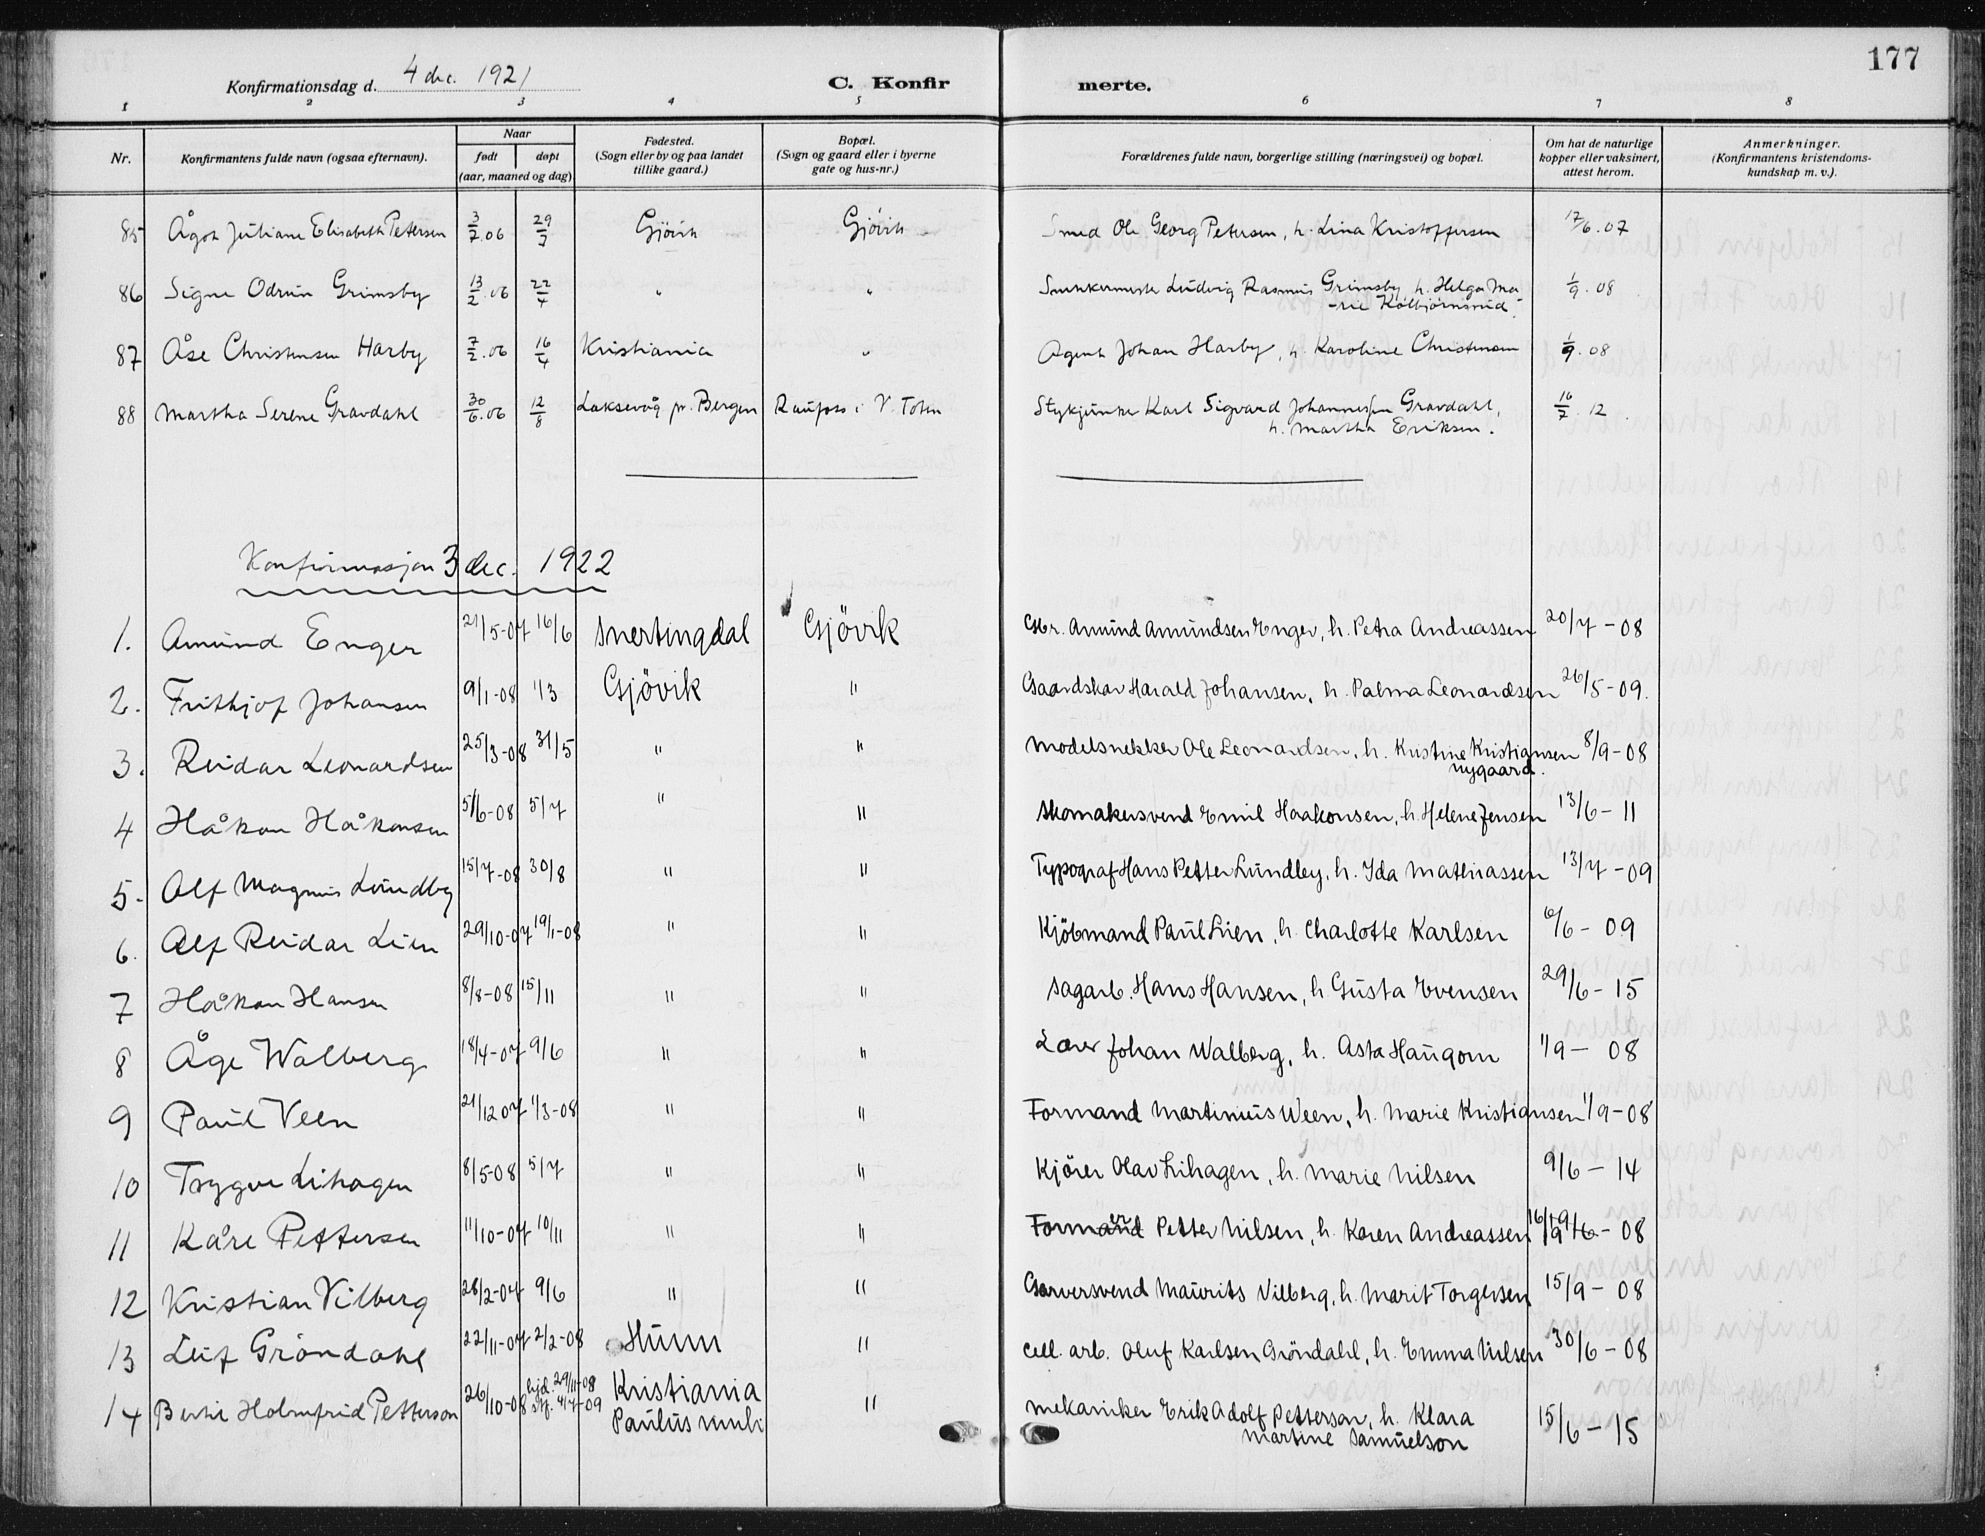 177
Konfirmationsdag d. 4 dec. 1921 C. Konfirmerte.
1 2 3 4 5 6 7 8
Nr. Konfirmantens fulde navn (ogsaa efternavn). Naar født døpt (aar, maaned og dag) Fødested. (Sogn eller by og paa landet tillike gaard.) Bopæl. (Sogn og gaard eller i byerne gate og hus-nr.) Forældrenes fulde navn, borgerlige stilling (næringsvei) og bopæl. Om hat de naturlige kopper eller vaksinert, attest herom. Anmerkninger. (Konfirmantens kristendoms-kundskap m. v.).
85 Ågot Juliane Elisabeth Petersen 3/7.06 29/7 Gjövik Gjövik Smed Ole Georg Petersen, h. Lina Kristoffersen 17/6.07
86 Signe Odrun Grimsby 13/2.06 22/4 " " Snekkermester Ludvig Rasmus Grimsby, h. Helga Ma-
rie Kolbjørnsrud.
1/9.08
87 Åse Christensen Harby 7/2.06 16/4 Kristiania " Agent Johan Harby, h. Karoline Christensen 1/9.08
88 Martha Serene Gravdahl 30/6.06 12/8 Laksevåg pr. Bergen Raufoss i V. Toten Stykjunker Karl Sigvard Johannessen Gravdahl,
h. Martha Eriksen.
16/7.12
Konfirmasjon 3 dec. 1922
1. Amund Enger 21/5-07 16/6 Snertingdal Gjövik Gbr. Amund Amundsen Enger, h. Petra Andreassen 20/7-08
2. Frithjof Johansen 9/1-08 1/3 Gjövik " Gaardskar Harald Johansen, h. Palma Leonardsen 26/5-09.
3. Reidar Leonardsen 25/3-08 31/5 " " Modelsnekker Ole Leonardsen, h. Kristine Kristiansen 8/9-08
Nygaard.
4 Håkon Håkonsen 5/6-08 5/7 " " Skomakersvend Emil Haakonsen, h. Helene Jensen 13/6-11
5. Alf Magnus Lundby 15/7-08 30/8 " " Typograf Hans Petter Lundby, h. Ida Mathiassen 13/7-09
6. Alf Reidar Lien 29/10-07 19/1-08 " " Kjöbmand Paul Lien, h. Charlotte Karlsen 6/6-09
7 Håkon Hansen 8/8-08 15/11 " " Sagarb. Hans Hansen, h. Gusta Evensen 29/6-15
8 Åge Walberg 18/4-07 9/6 " " Lærer Johan Walberg, h. Asta Haugom 1/9-08
9 Paul Veen 21/12 07 1/3-08 " " Formand Martinius Ween, h. Marie Kristiansen 1/9-08
10 Trygve Lihagen 8/5-08 5/7 " " Kjörer Olav Lihagen, h. Marie Nilsen 9/6-14
11 Kåre Pettersen 11/10-07 10/11 " " Formand Petter Nilsen, h. Karen Andreassen 16/9-08
12 Kristian Vilberg 28/2-07 9/6 " " Garversvend Maurits Vilberg, h. Marit Torgersen 15/9-08
13 Leif Gröndahl 22/11-07 2/2-08 Hunn " Cell. arb. Oluf Karlsen Gröndahl, h. Emma Nilsen 30/6-08
14 Holmfrid Petterson 26/10-08 hjd. 29/11-08
stf. 4/7-09
Kristiania
Paulus
" Mekaniker Erik Adolf Petterson, h. Klara
Martine Samuelson
15/6-15